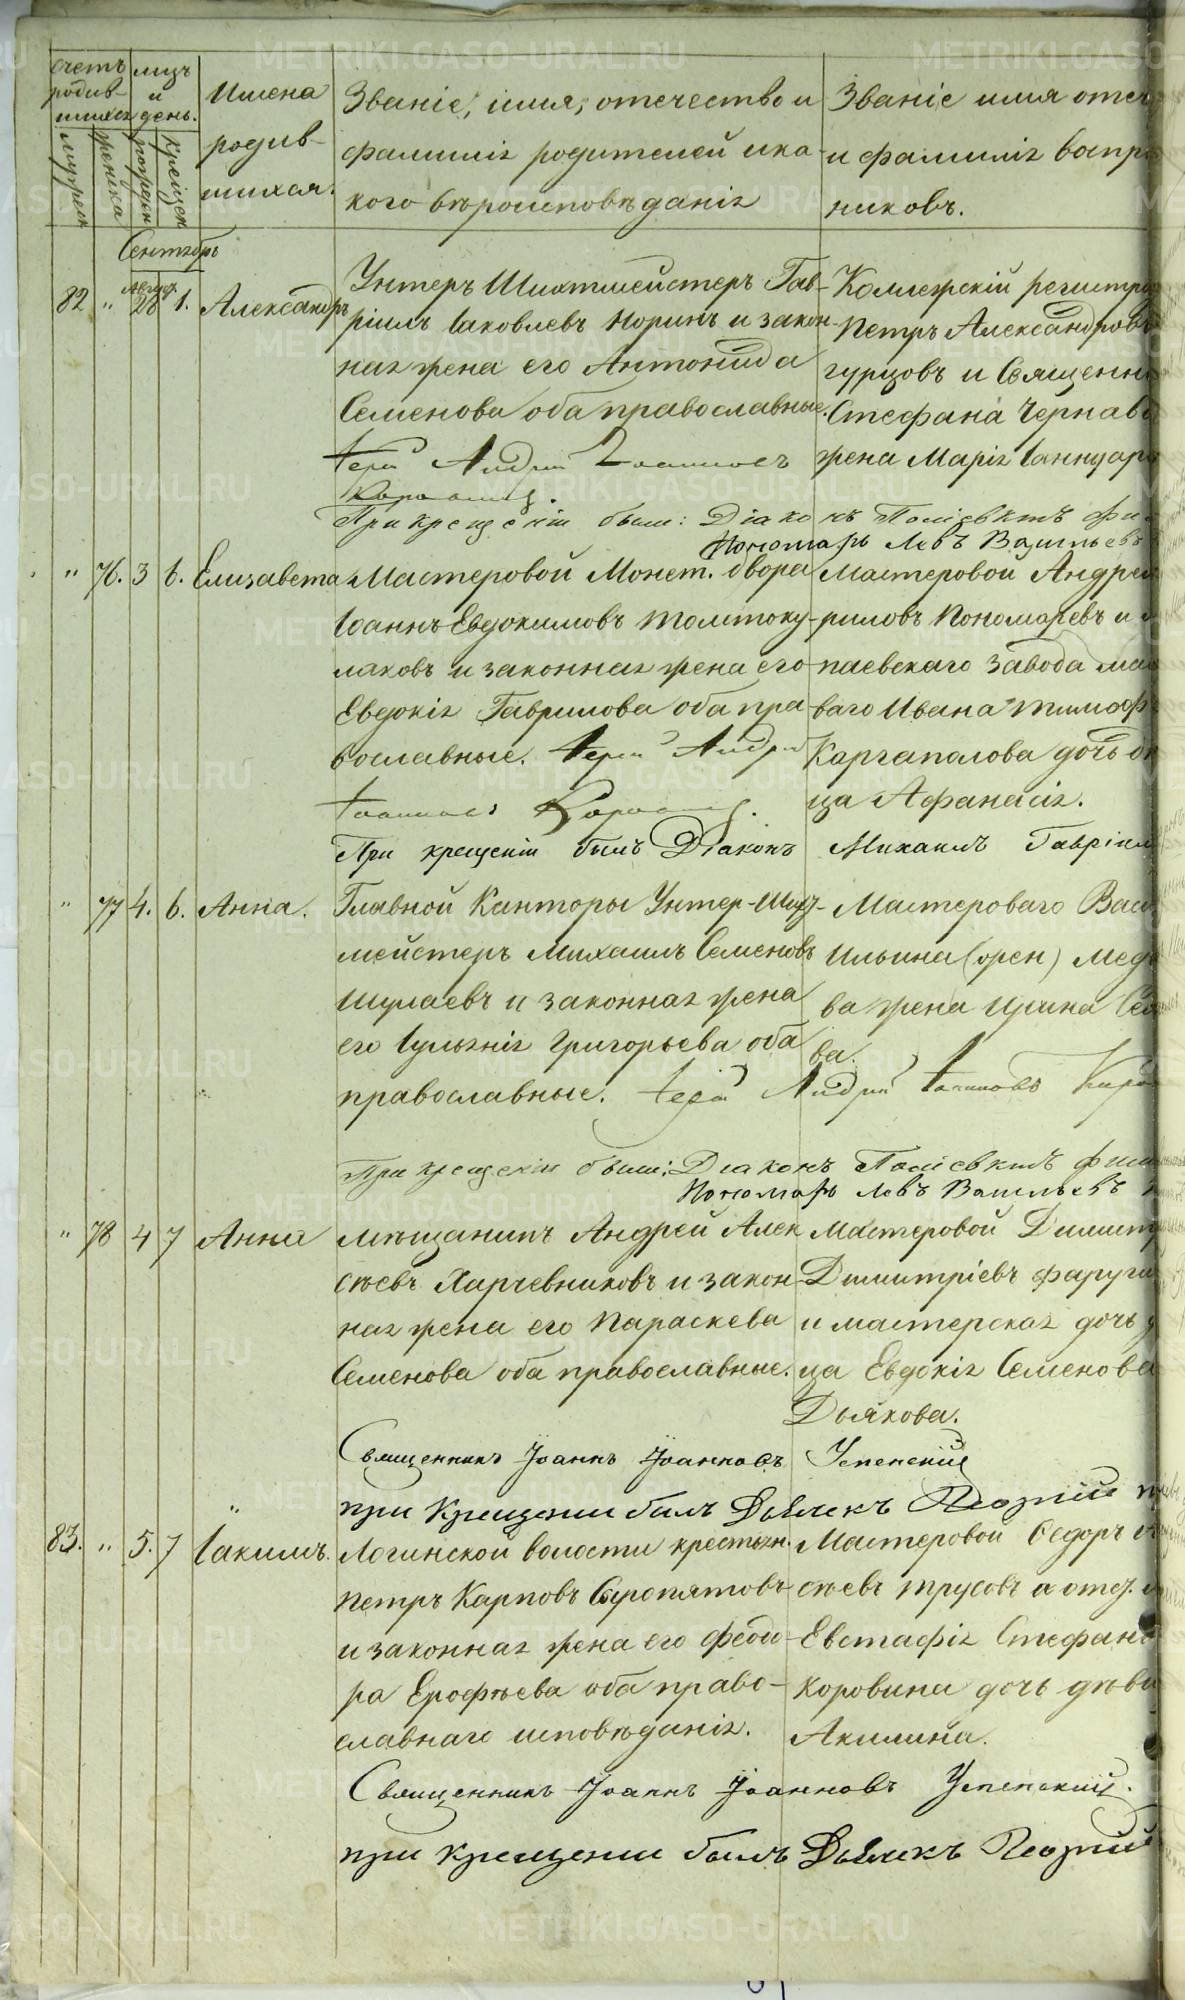 Счетъ родив-шихся
мужеска
женска
мцъ и день.
рожден
крещен
Имена родив-шихся.
Званіе, имя, отечество и
фамилія родителей и ка-
кого вѣроисповѣданія
Званіе имя отеч
и фамилія воспр
никовъ.
Сентябрь
Авгус.
82 " 28 1. Александръ
Унтеръ Шихтмейстеръ Гав-
ріилъ Іаковлевъ Норинъ и закон-
ная жена его Антонида
Семенова оба православные.
Коллежскій регистра
Петръ Александровъ
гурцовъ и Священни
Стефана Чернав
жена Марія Іаннуар
Іерей Андрей Іоанновъ
При крещеніи были: Діаконъ Поліевктъ Фи
Пономарь Левъ Васильевъ
" 76. 3 6. Елизавета
Мастеровой Монет. двора
Іоаннъ Евдокимовъ Толстоку-
лаковъ и законная жена его
Евдокія Гаврилова оба пра-
вославные. Іерей Андрей
Іоанновъ
Мастеровой Андрей
риловъ Пономаревъ и
паевскаго завода мас
ваго Ивана Тимоф
Каргаполова дочь д
ца Афанасія.
При крещеніи былъ Діаконъ Михаилъ Гавріил
" 77 4. 6. Анна.
Главной Канторы Унтер-Шихт-
мейстеръ Михаилъ Семеновъ
Шулаевъ и законная жена
его Іуліянія Григорьева оба
православные. Іерей Андрей Іоанновъ
Мастероваго Васи
Ильина (орен) Медв
ва жена Ирина Се
ва.
При крещеніи были: Діаконъ Поліевктъ Фи
Пономарь Левъ Васильевъ
" 78 4 7 Анна
Мѣщанинъ Андрей Алек
сѣевъ Харчевниковъ и закон-
ная жена его Параскева
Семенова оба православные.
Мастеровой Димит
Димитріевъ Фаруги
и мастерская дочь д
ца Евдокія Семенова
Дьякова.
Священникъ Іоаннъ Іоанновъ Успенскій
при крещеніи былъ Дьячекъ Георгій
83. " 5. 7 Іакимъ.
Логинской волости крестьян.
Петръ Карповъ Сыропятовъ
и законная жена его Феодо-
ра Ерофѣева оба право-
славнаго исповѣданія.
Мастеровой Ѳедоръ
сѣевъ Трусовъ а отст.
Евстафія Стефано
Коровина дочь дѣви
Акилина.
Священникъ Іоаннъ Іоанновъ Успенскій.
при крещеніи былъ Дьячекъ Георгій
METRIKI.GASO-URAL.RU